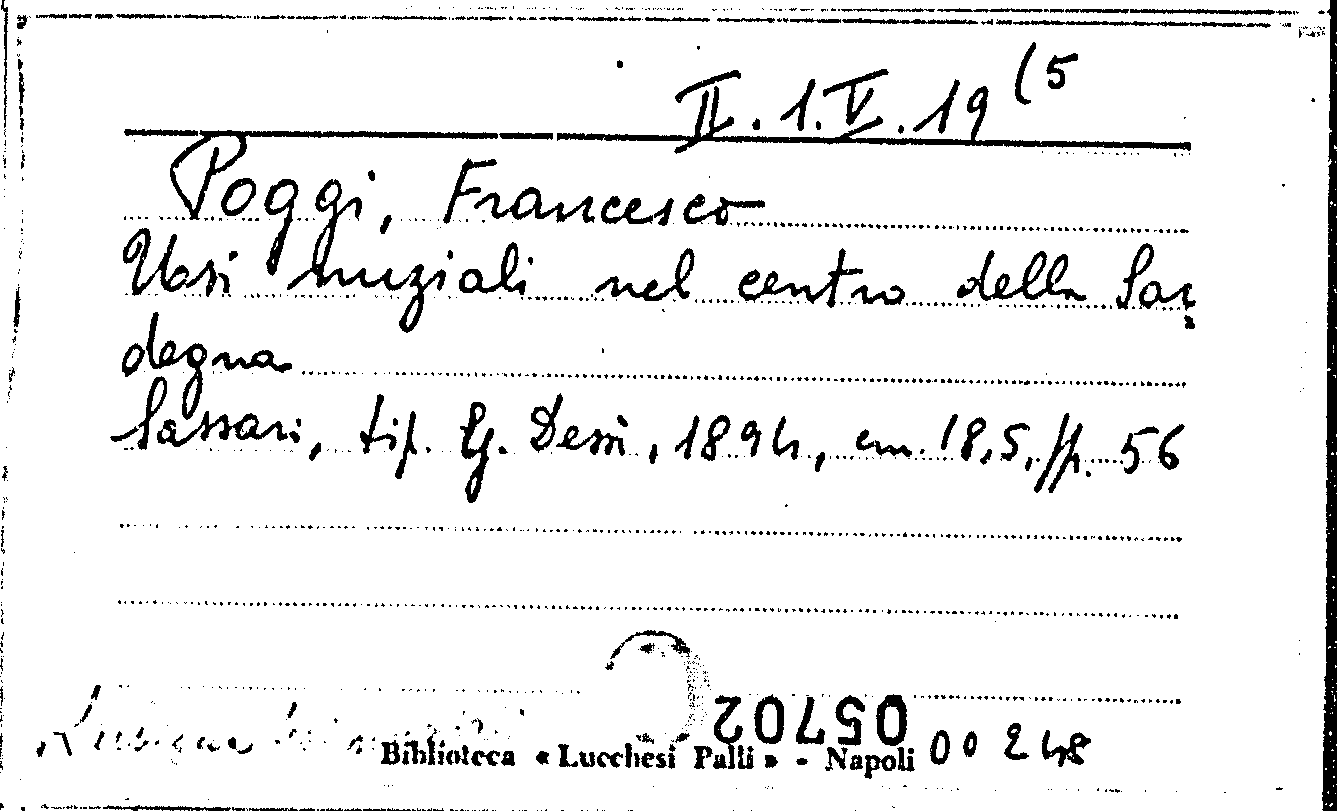 II.1.V.19 (5
Poggi, Francesco
Usi nuziali nel centro della Sar-
degna
Sassari, tip. G. Dessì, 1894, cm. 18,5, pp. 56
05702
Biblioteca « Lucchesi Palli » - Napoli 00 248